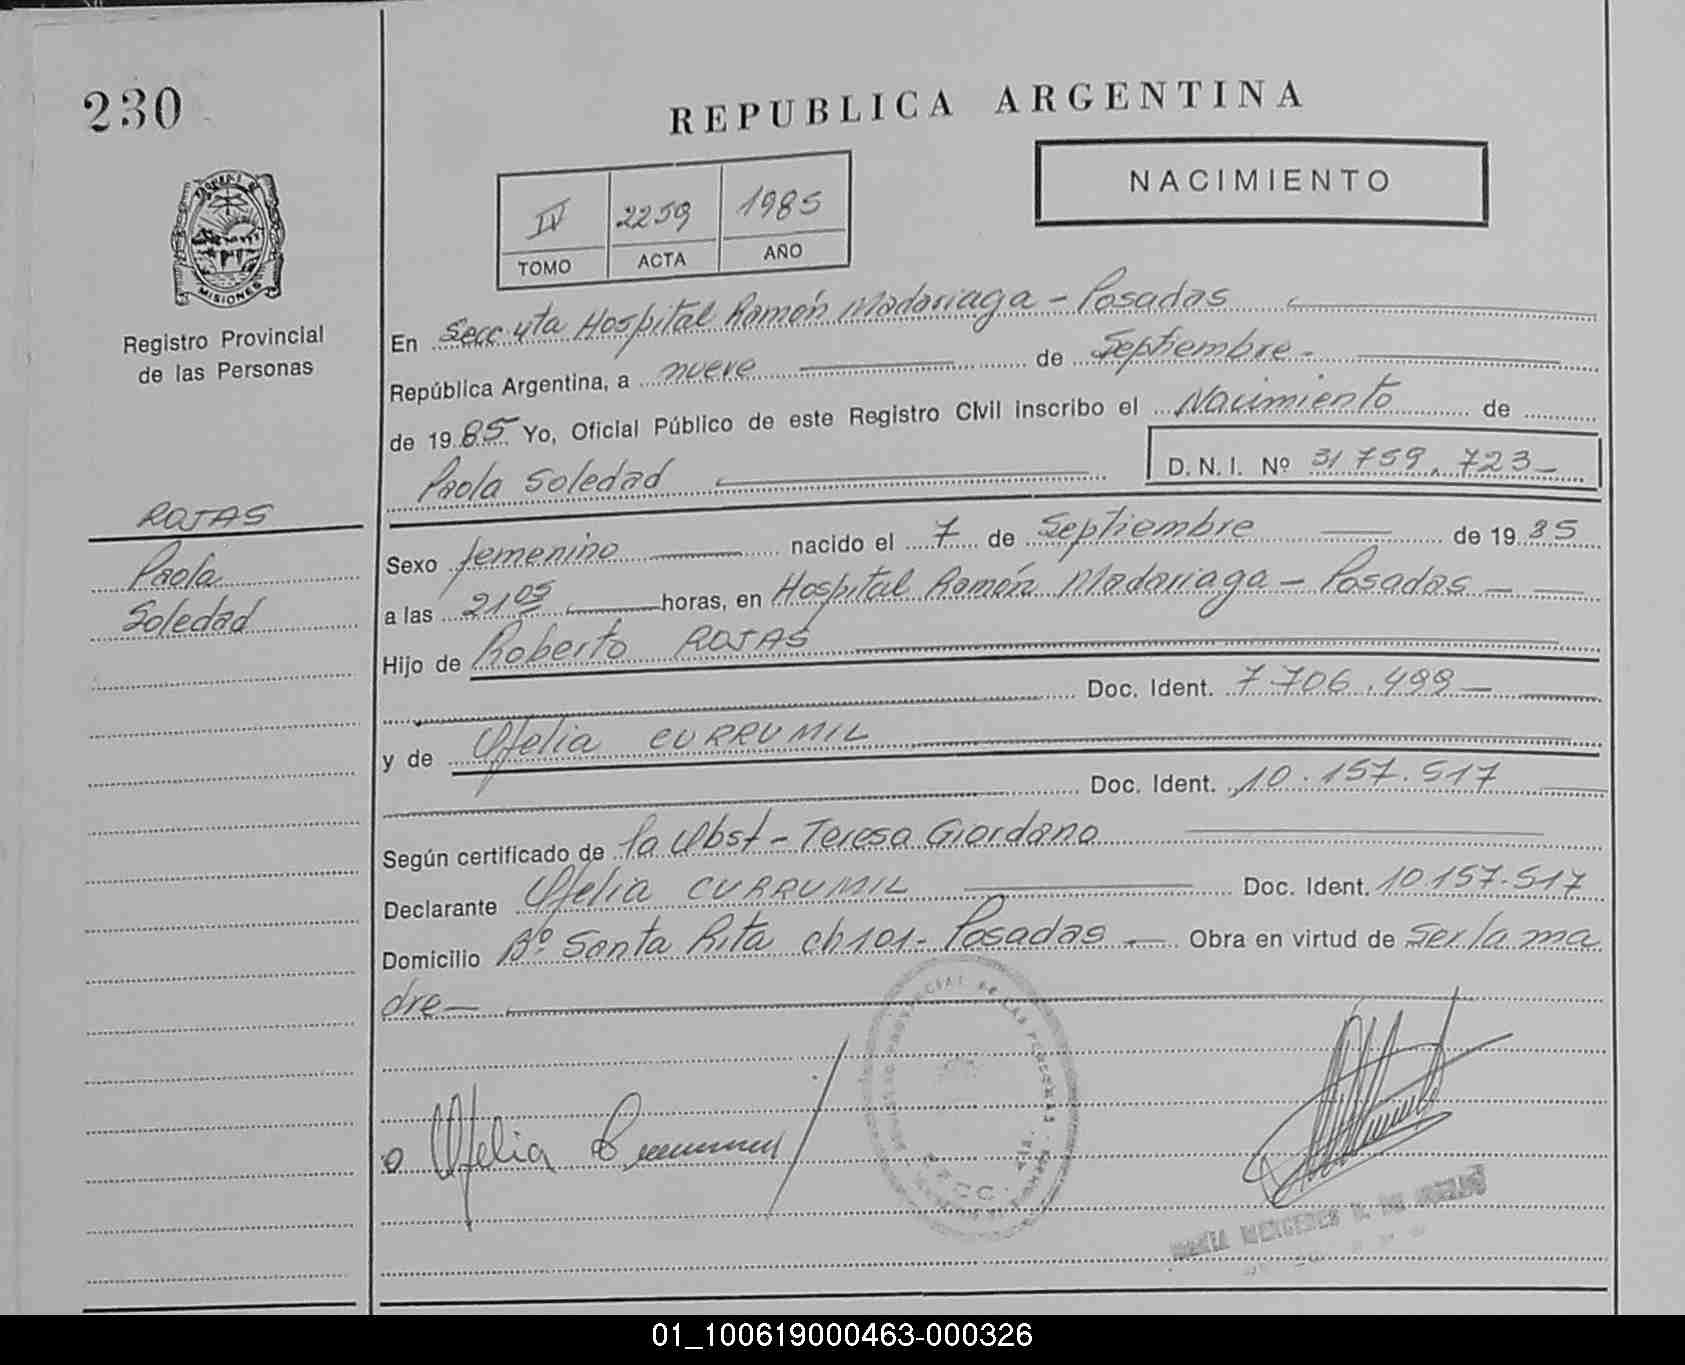 230
REPUBLICA ARGENTINA
NACIMIENTO
IV 2259 1985
TOMO ACTA AÑO
MISIONES
Registro Provincial
de las Personas
En Secc 4ta Hospital Ramón Madariaga - Posadas
República Argentina, a nueve de Septiembre -
de 1985 Yo, Oficial Público de este Registro Civil inscribo el Nacimiento de
Paola Soledad
D.N.I. Nº 31 759.723 -
ROJAS
Paola
Soledad
Sexo femenino nacido el 7 de Septiembre de 1985
a las 21 05 horas, en Hospital Ramón Madariaga - Posadas -
Hijo de Roberto ROJAS
Doc. Ident. 7.706.499 -
y de Ofelia CURRUMIL
Doc. Ident. 10.157.517
Según certificado de la Obst - Teresa Giordano
Declarante Ofelia CURRUMIL Doc. Ident. 10.157.517
Domicilio Bº Santa Rita ch 101 - Posadas - Obra en virtud de ser la ma
dre -
Ofelia
MERCEDES
01_100619000463-000326